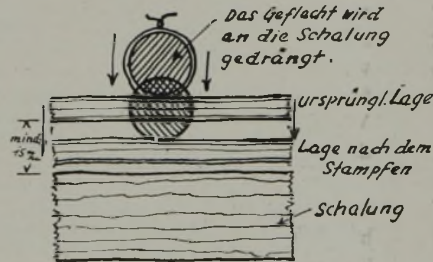 Das Geflecht wird
an die Schalung
gedrängt.
ursprüngl. Lage
mind.
Lage nach dem
Stampfen
Schalung